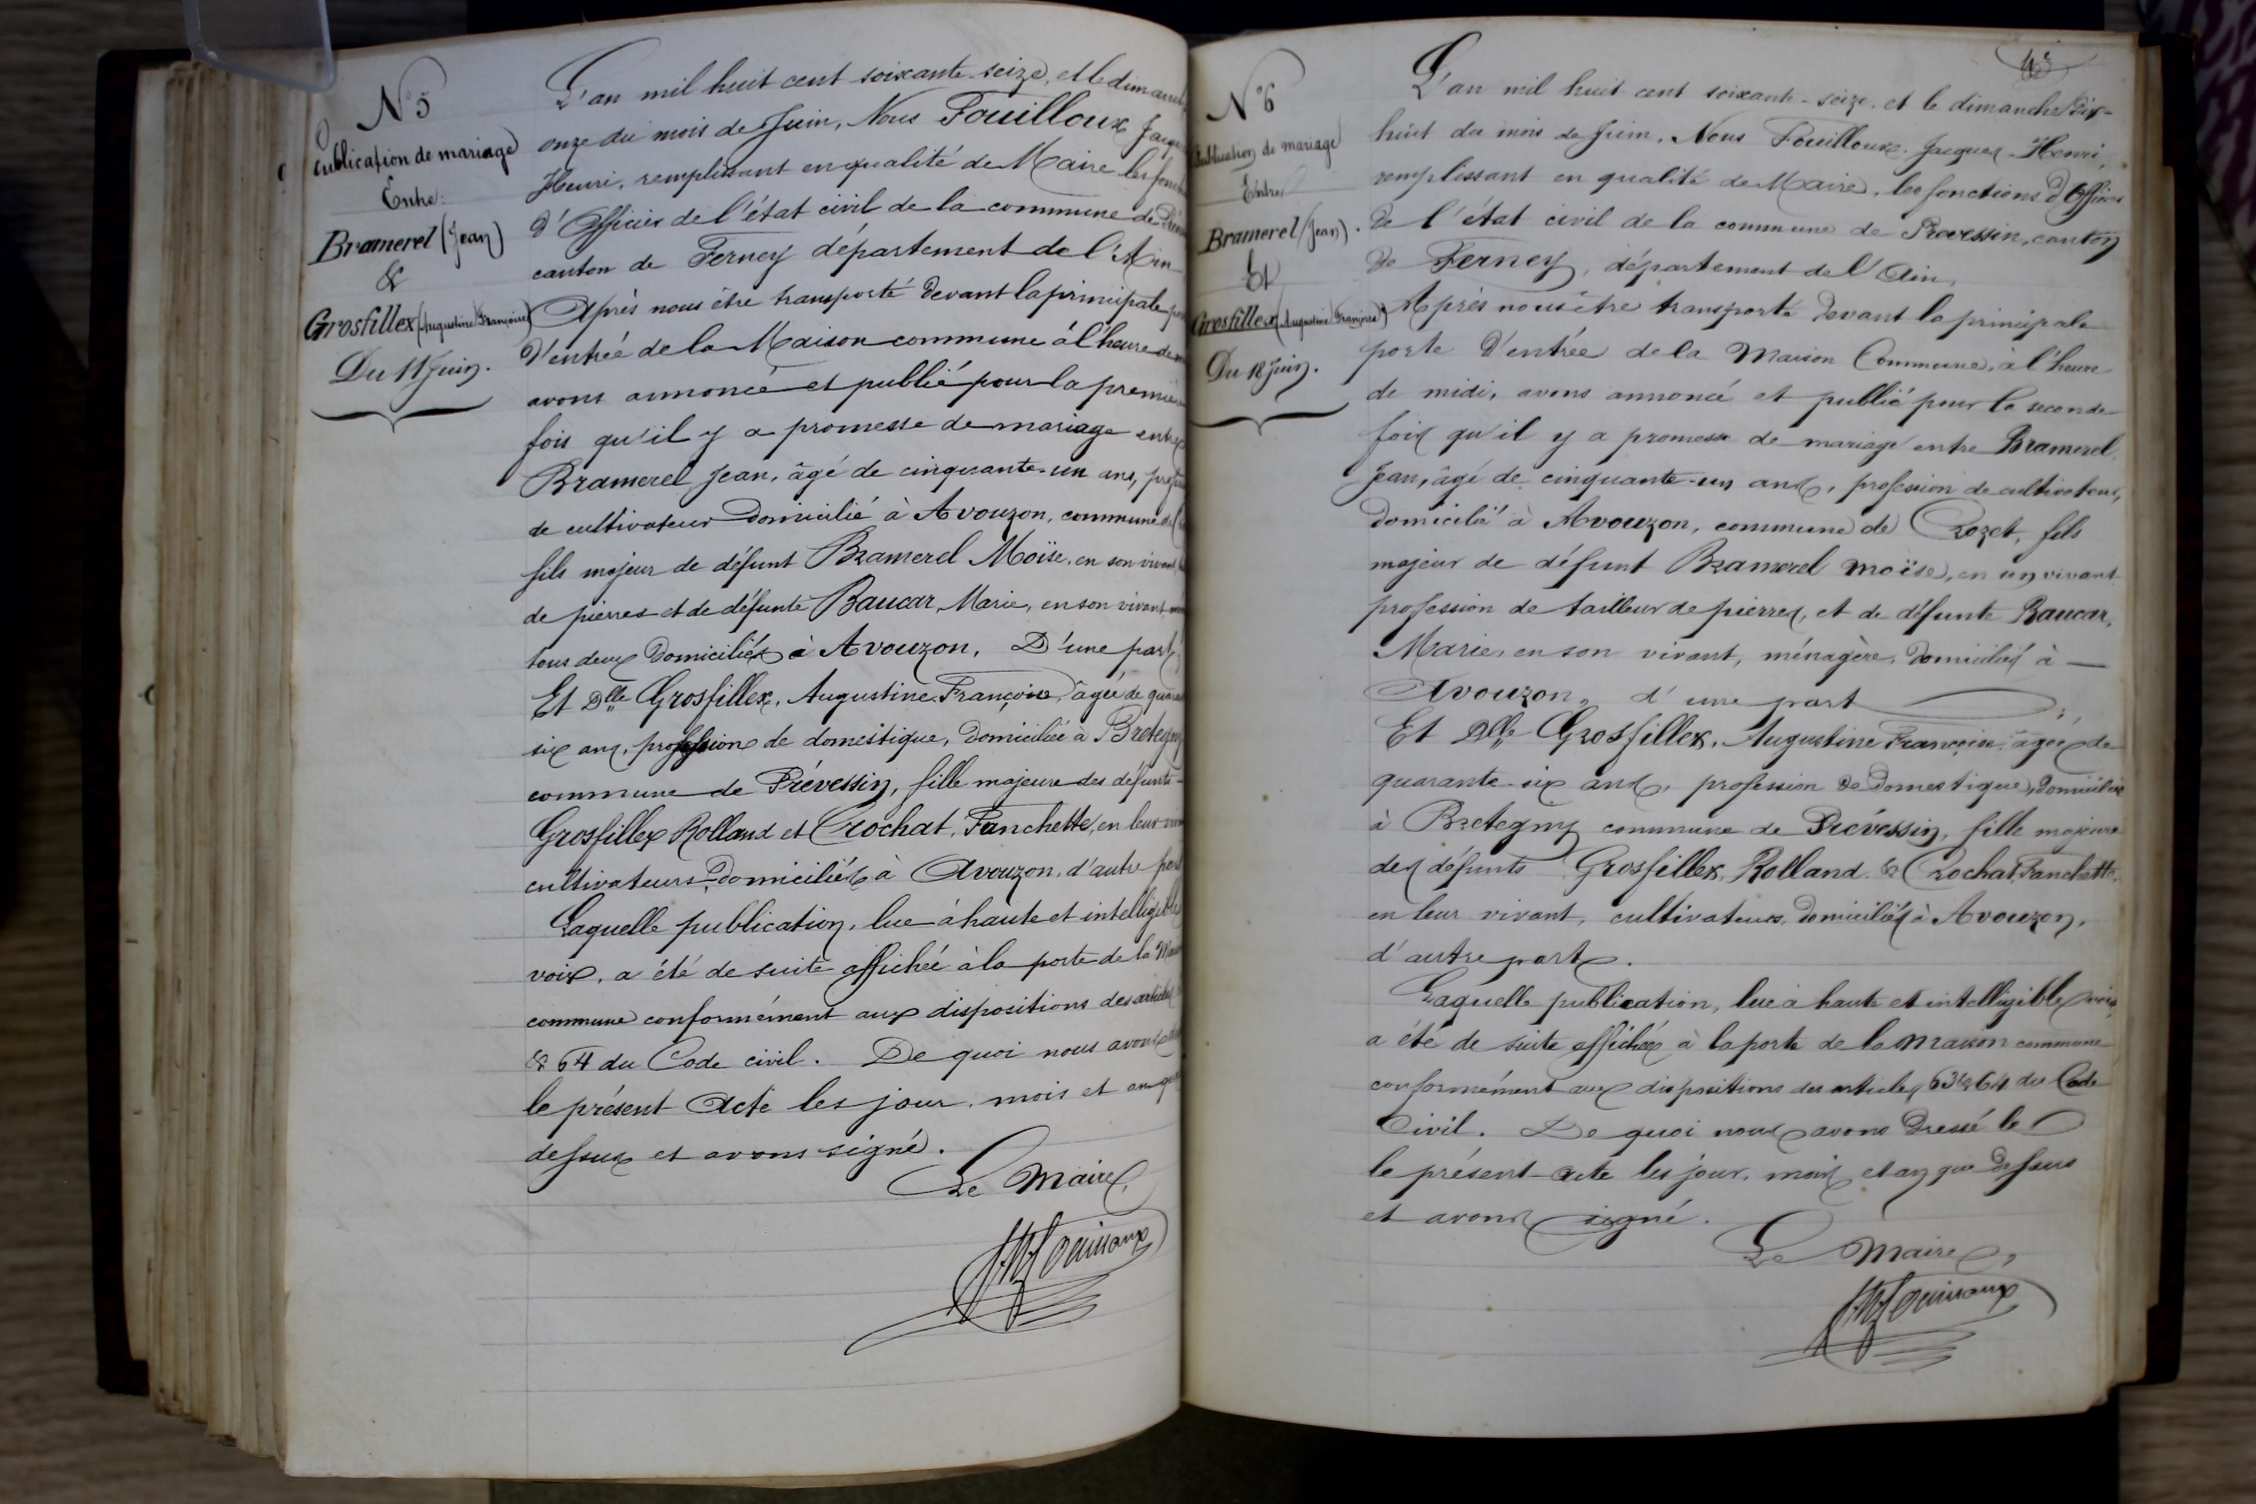 N° 5
Publication de mariage
Entre
Bramerel (Jean)
&
Grosfillex (Augustine Françoise)
Du 11 Juin.
L'an mil huit cent soixante-seize, et le dimanche
onze du mois de Juin, Nous Fouilloux Jacques
Henri, remplissant en qualité de Maire les fonctions
d'Officier de l'état civil de la commune de
canton de Ferney département de l'Ain
Après nous être transporté devant la principale
d'entrée de la Maison commune à l'heure de
avons annoncé et publié pour la première
fois qu'il y a promesse de mariage entre
Bramerel, Jean, âgé de cinquante-un ans,
de cultivateur domicilié à Avouzon, commune de
fils majeur de défunt Bramerel Moïse, en son vivant
de pierres et de défunte Baucar, Marie, en son vivant
tous deux domiciliés à Avouzon, D'une part,
Et Dlle Grosfillex, Augustine Françoise, âgée de
six ans, profession de domestique, domiciliée à Bretegny
commune de Prévessin, fille majeure des défunts
Grosfillex Rolland et Crochat, Fanchette, en leur
cultivateurs domiciliés à Avouzon, d'autre part
Laquelle publication, lue à haute et intelligible
voix, a été de suite affichée à la porte de la
commune conformément aux dispositions des articles
& 64 du Code civil. De quoi nous avons
le présent acte les jour, mois et an que
dessus et avons signé.
Le Maire,
J. H. Fouilloux
43
N° 6
Publication de mariage
Entre
Bramerel (Jean).
Et
Grosfillex (Augustine Françoise)
Du 18 Juin.
L'an mil huit cent soixante-seize, et le dimanche dix-
huit du mois de Juin, Nous Fouilloux Jacques-Henri,
remplissant en qualité de Maire, les fonctions d'Officier
de l'état civil de la commune de Prevessin, canton
de Ferney, département de l'Ain,
Après nous être transporté devant la principale
porte d'entrée de la Maison Commune, à l'heure
de midi, avons annoncé et publié pour la seconde
fois qu'il y a promesse de mariage entre Bramerel,
Jean, âgé de cinquante-un ans, profession de cultivateur,
domicilié à Avouzon, commune de Crozet, fils
majeur de défunt Bramerel Moïse, en son vivant
profession de tailleur de pierres, et de défunte Baucar,
Marie, en son vivant, ménagère, domiciliés à
Avouzon, d'une part
Et Dlle Grosfillex, Augustine Françoise, âgée de
quarante-six ans, profession de domestique, domiciliée
à Bretegny commune de Prévessin, fille majeure
des défunts Grosfillex, Rolland & Crochat, Fanchette,
en leur vivant, cultivateurs, domiciliés à Avouzon,
d'autre part.
Laquelle publication, lue à haute et intelligible voix,
a été de suite affichée à la porte de la Maison commune
conformément aux dispositions des articles 63 & 64 du Code
Civil. De quoi nous avons dressé le
le présent acte les jour, mois et an que dessus
et avons signé.
Le Maire,
J. H. Fouilloux